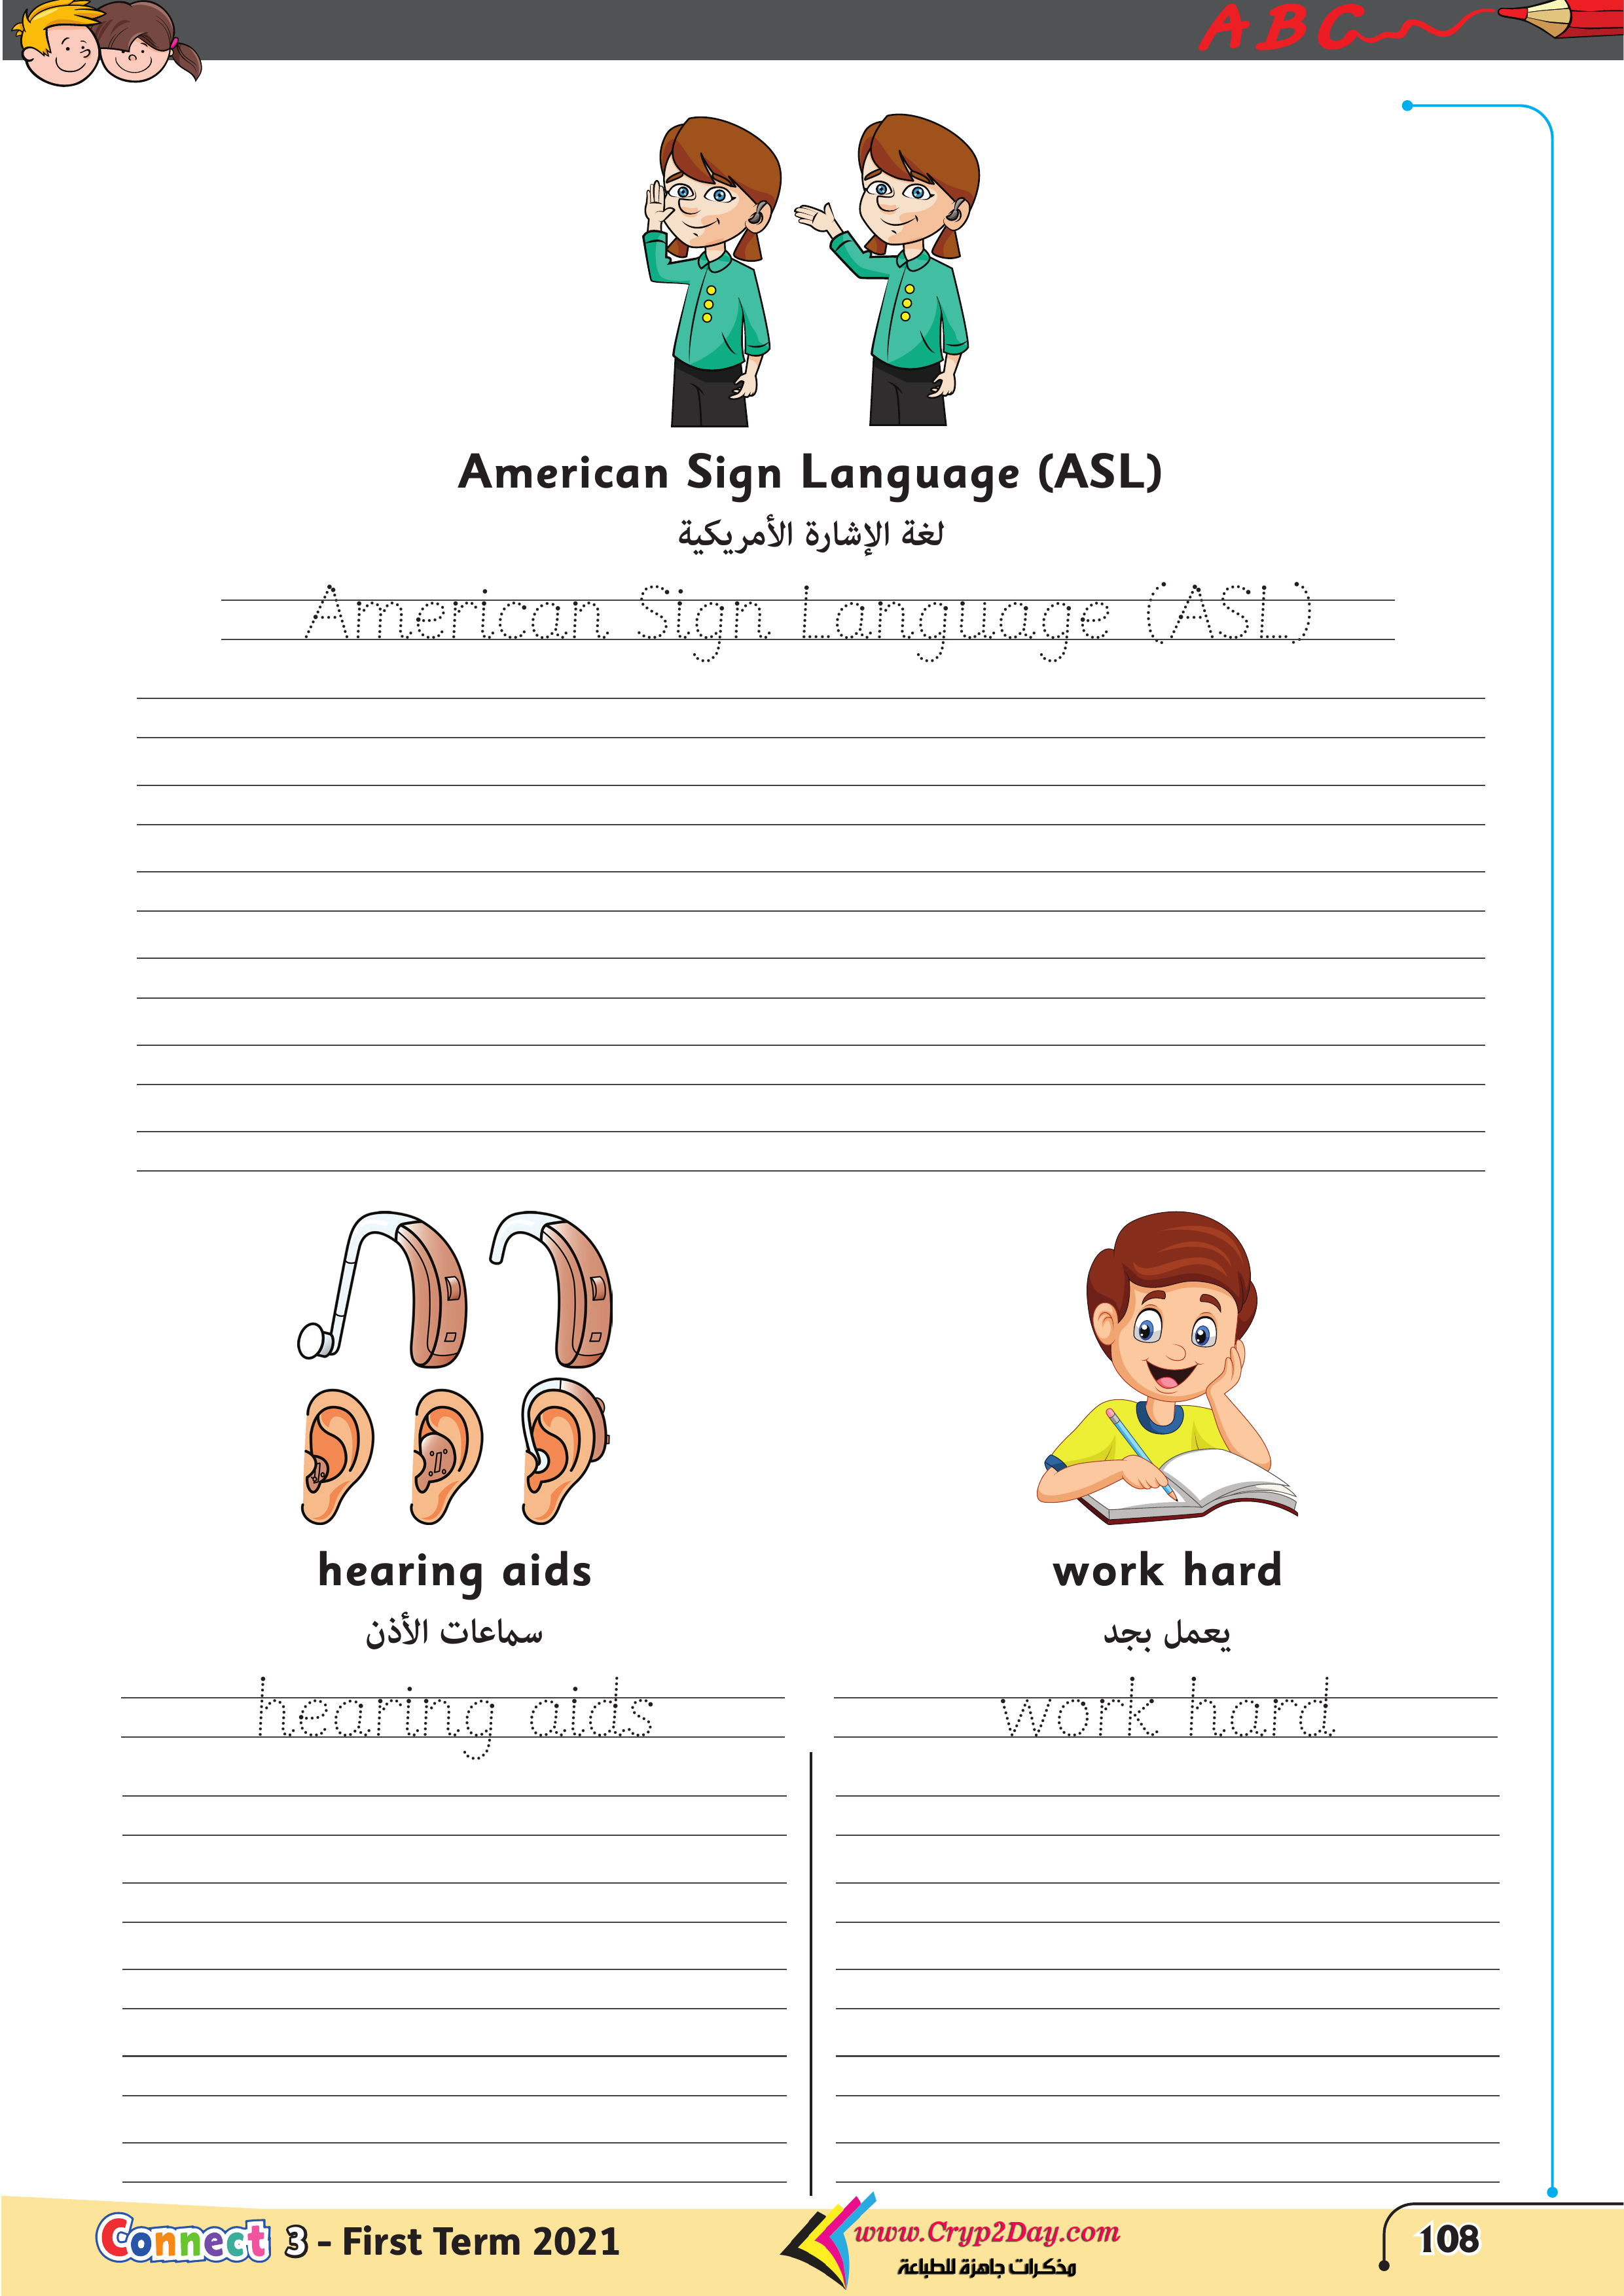 ABC
American Sign Language (ASL)
لغة الإشارة الأمريكية
American Sign Language (ASL)
hearing aids
سماعات الأذن
hearing aids
work hard
يعمل بجد
work hard
Connect 3 - First Term 2021
www.Cryp2Day.com
مذكرات جاهزة للطباعة
108